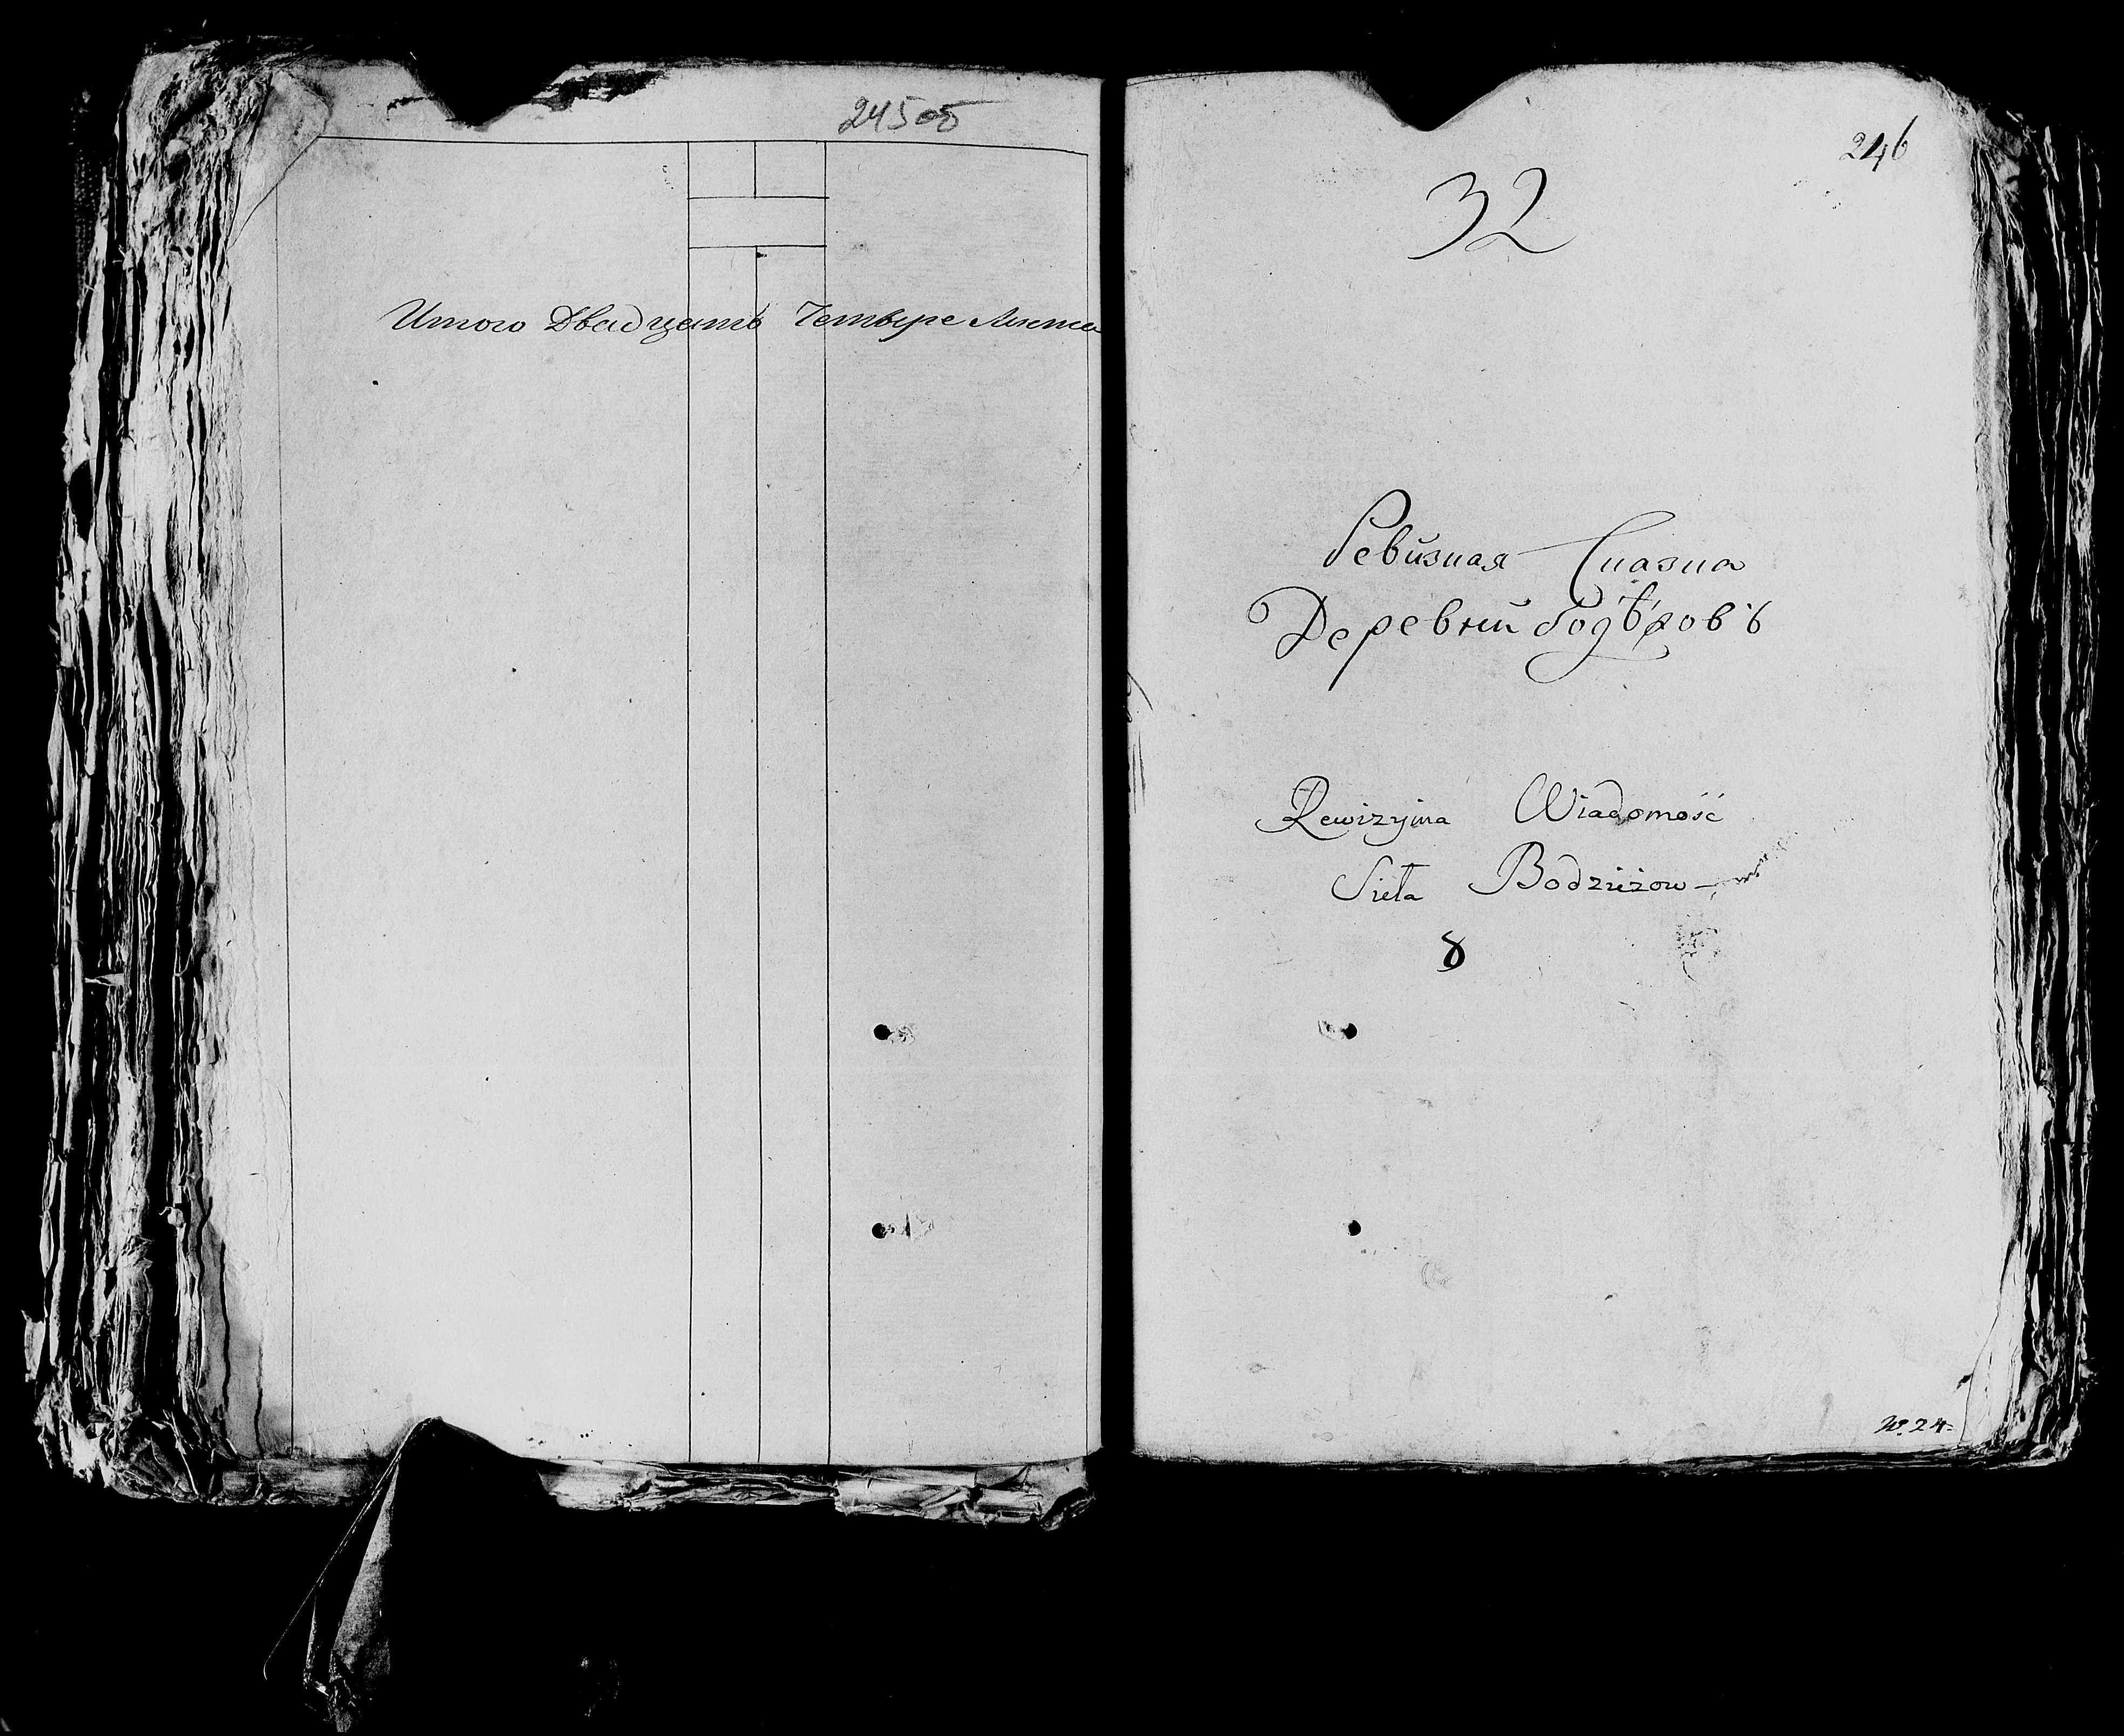 245об
Итого Двадцать Четыре Листа
246
32
Ревизная Сказка
Деревни Бодѣжовъ
Rewizyina Wiadomość
Sieła Bodziżow
8
№ 24